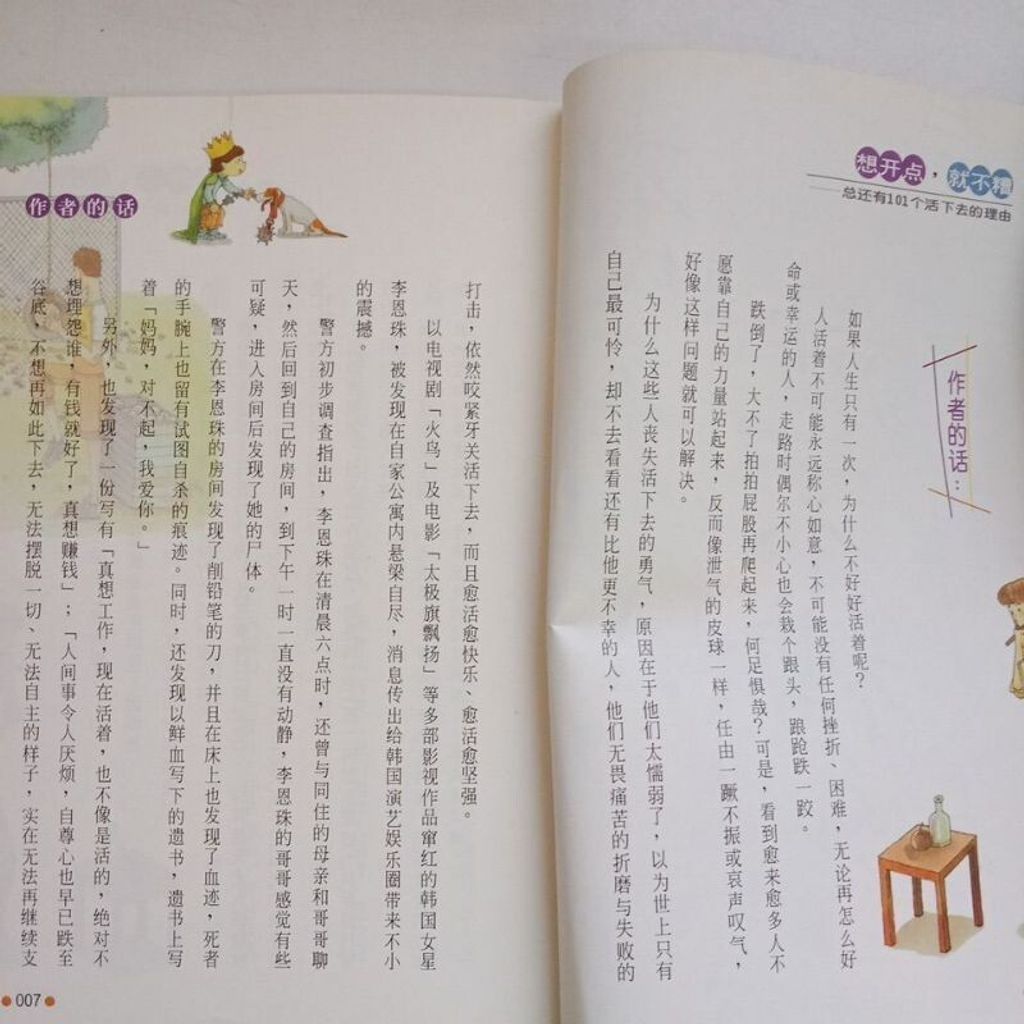 想开点，就不糟
总还有101个活下去的理由
作者的话：
如果人生只有一次，为什么不好好活着呢？
人活着不可能永远称心如意，不可能没有任何挫折、困难，无论再怎么好
命或幸运的人，走路时偶尔不小心也会栽个跟头，踉跄跌一跤。
跌倒了，大不了拍拍屁股再爬起来，何足惧哉？可是，看到愈来愈多人不
愿靠自己的力量站起来，反而像泄气的皮球一样，任由一蹶不振或哀声叹气，
好像这样问题就可以解决。
为什么这些人丧失活下去的勇气，原因在于他们太懦弱了，以为世上只有
自己最可怜，却不去看看还有比他更不幸的人，他们无畏痛苦的折磨与失败的
作者的话
打击，依然咬紧牙关活下去，而且愈活愈快乐、愈活愈坚强。
以电视剧「火鸟」及电影「太极旗飘扬」等多部影视作品窜红的韩国女星
李恩珠，被发现在自家公寓内悬梁自尽，消息传出给韩国演艺娱乐圈带来不小
的震撼。
警方初步调查指出，李恩珠在清晨六点时，还曾与同住的母亲和哥哥聊
天，然后回到自己的房间，到下午一时一直没有动静，李恩珠的哥哥感觉有些
可疑，进入房间后发现了她的尸体。
警方在李恩珠的房间发现了削铅笔的刀，并且在床上也发现了血迹，死者
的手腕上也留有试图自杀的痕迹。同时，还发现以鲜血写下的遗书，遗书上写
着「妈妈，对不起，我爱你。」
另外，也发现了一份写有「真想工作，现在活着，也不像是活的，绝对不
想埋怨谁，有钱就好了，真想赚钱」；「人间事令人厌烦，自尊心也早已跌至
谷底，不想再如此下去，无法摆脱一切、无法自主的样子，实在无法再继续支
007